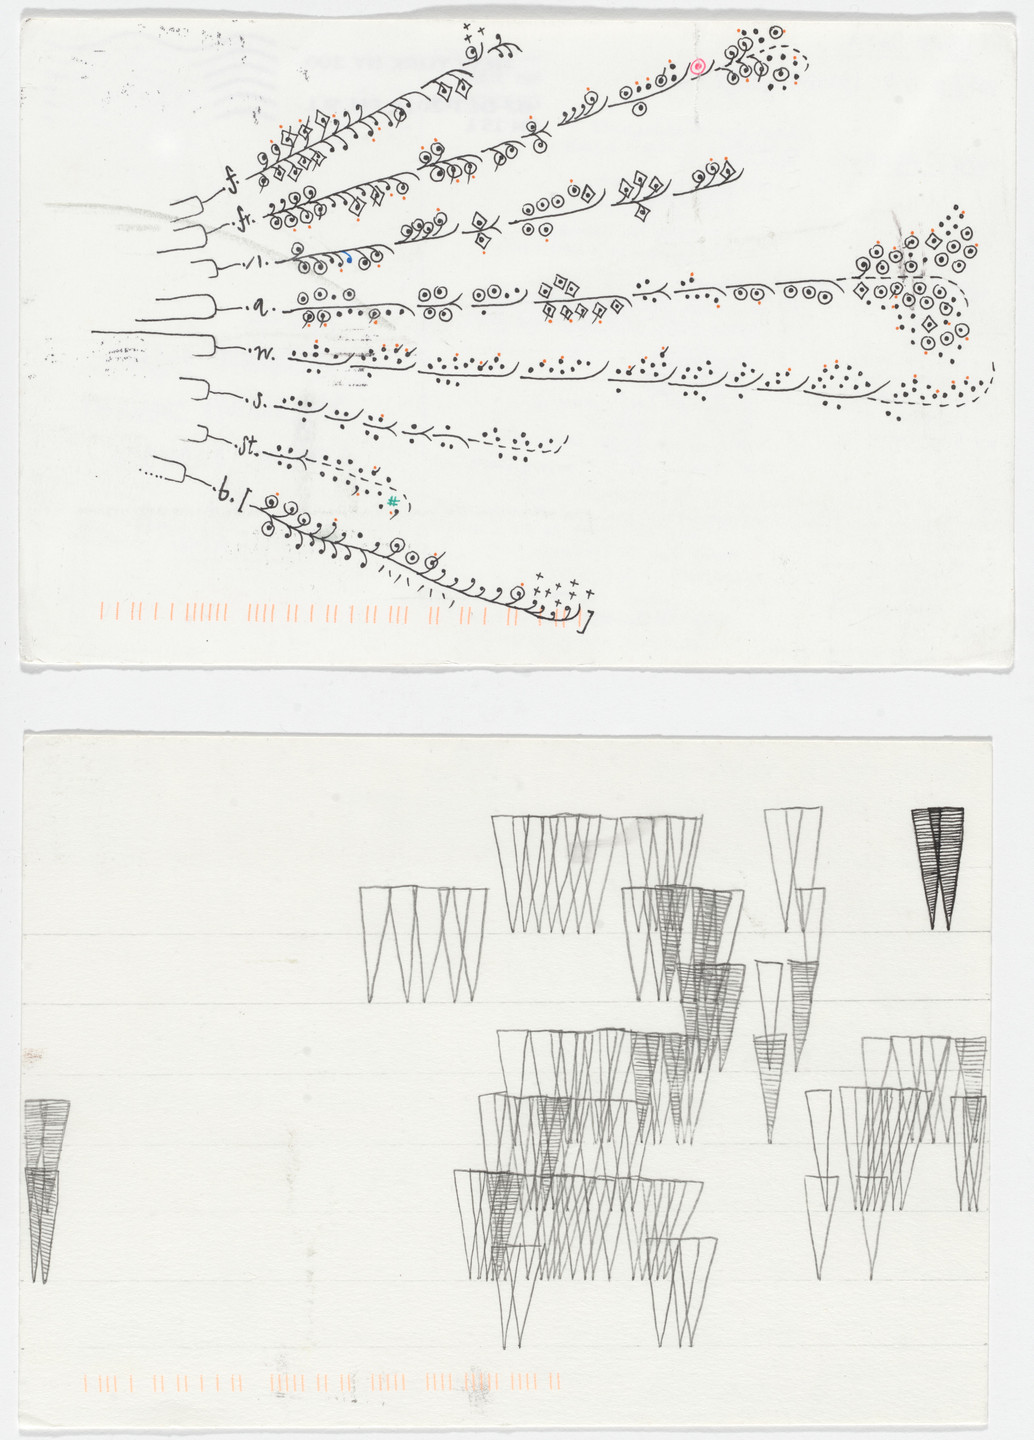 .f.
.fr.
.vl.
.a.
.w.
.s.
.st.
.b. [ ]
#